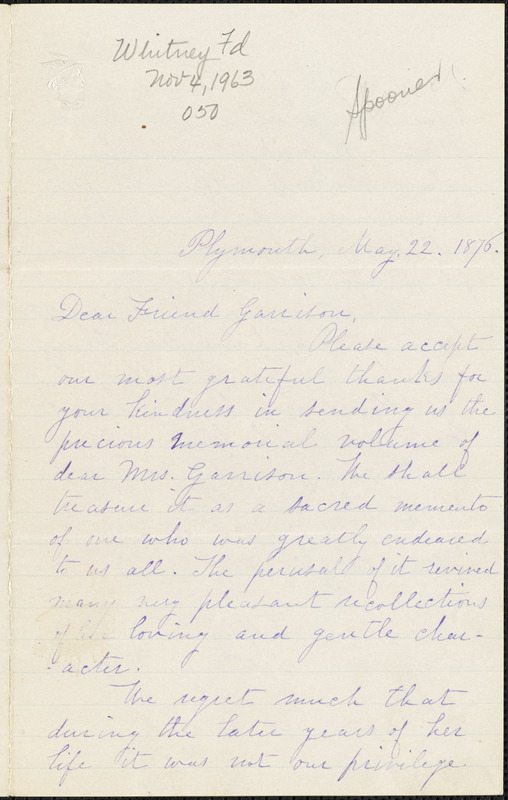 Whitney Fd
Nov 4, 1963
050
Spooner
Plymouth, May. 22. 1876.
Dear Friend Garrison,
Please accept
our most grateful thanks for
your kindness in sending us the
precious memorial volume of
dear Mrs. Garrison. We shall
treasure it as a sacred memento
of one who was greatly endeared
to us all. The perusal of it revived
many very pleasant recollections
of her loving and gentle char-
-acter.
We regret much that
during the later years of her
life it was not our privilege